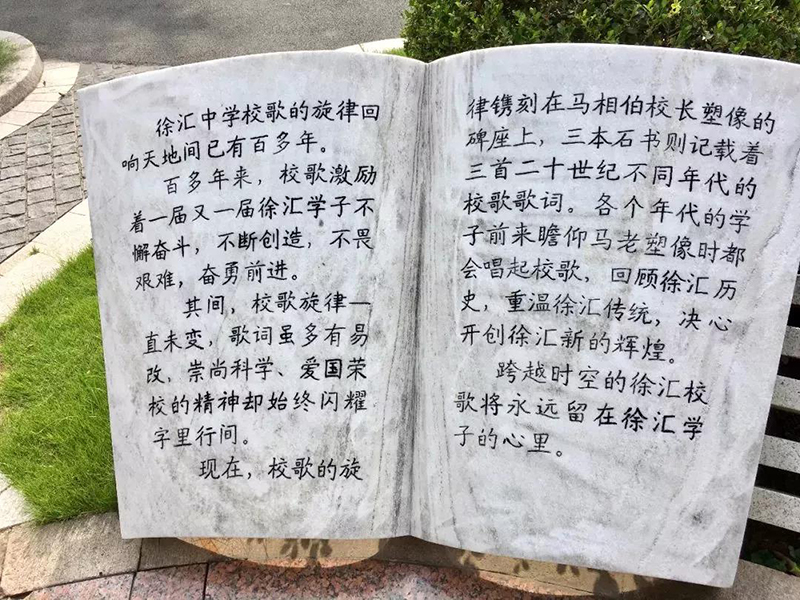 徐汇中学校歌的旋律回
响天地间已有百多年。
百多年来，校歌激励
着一届又一届徐汇学子不
懈奋斗，不断创造，不畏
艰难，奋勇前进。
其间，校歌旋律一
直未变，歌词虽多有易
改，崇尚科学、爱国荣
校的精神却始终闪耀
字里行间。
现在，校歌的旋
律镌刻在马相伯校长塑像的
碑座上，三本石书则记载着
三首二十世纪不同年代的
校歌歌词。各个年代的学
子前来瞻仰马老塑像时都
会唱起校歌，回顾徐汇历
史，重温徐汇传统，决心
开创徐汇新的辉煌。
跨越时空的徐汇校
歌将永远留在徐汇学
子的心里。